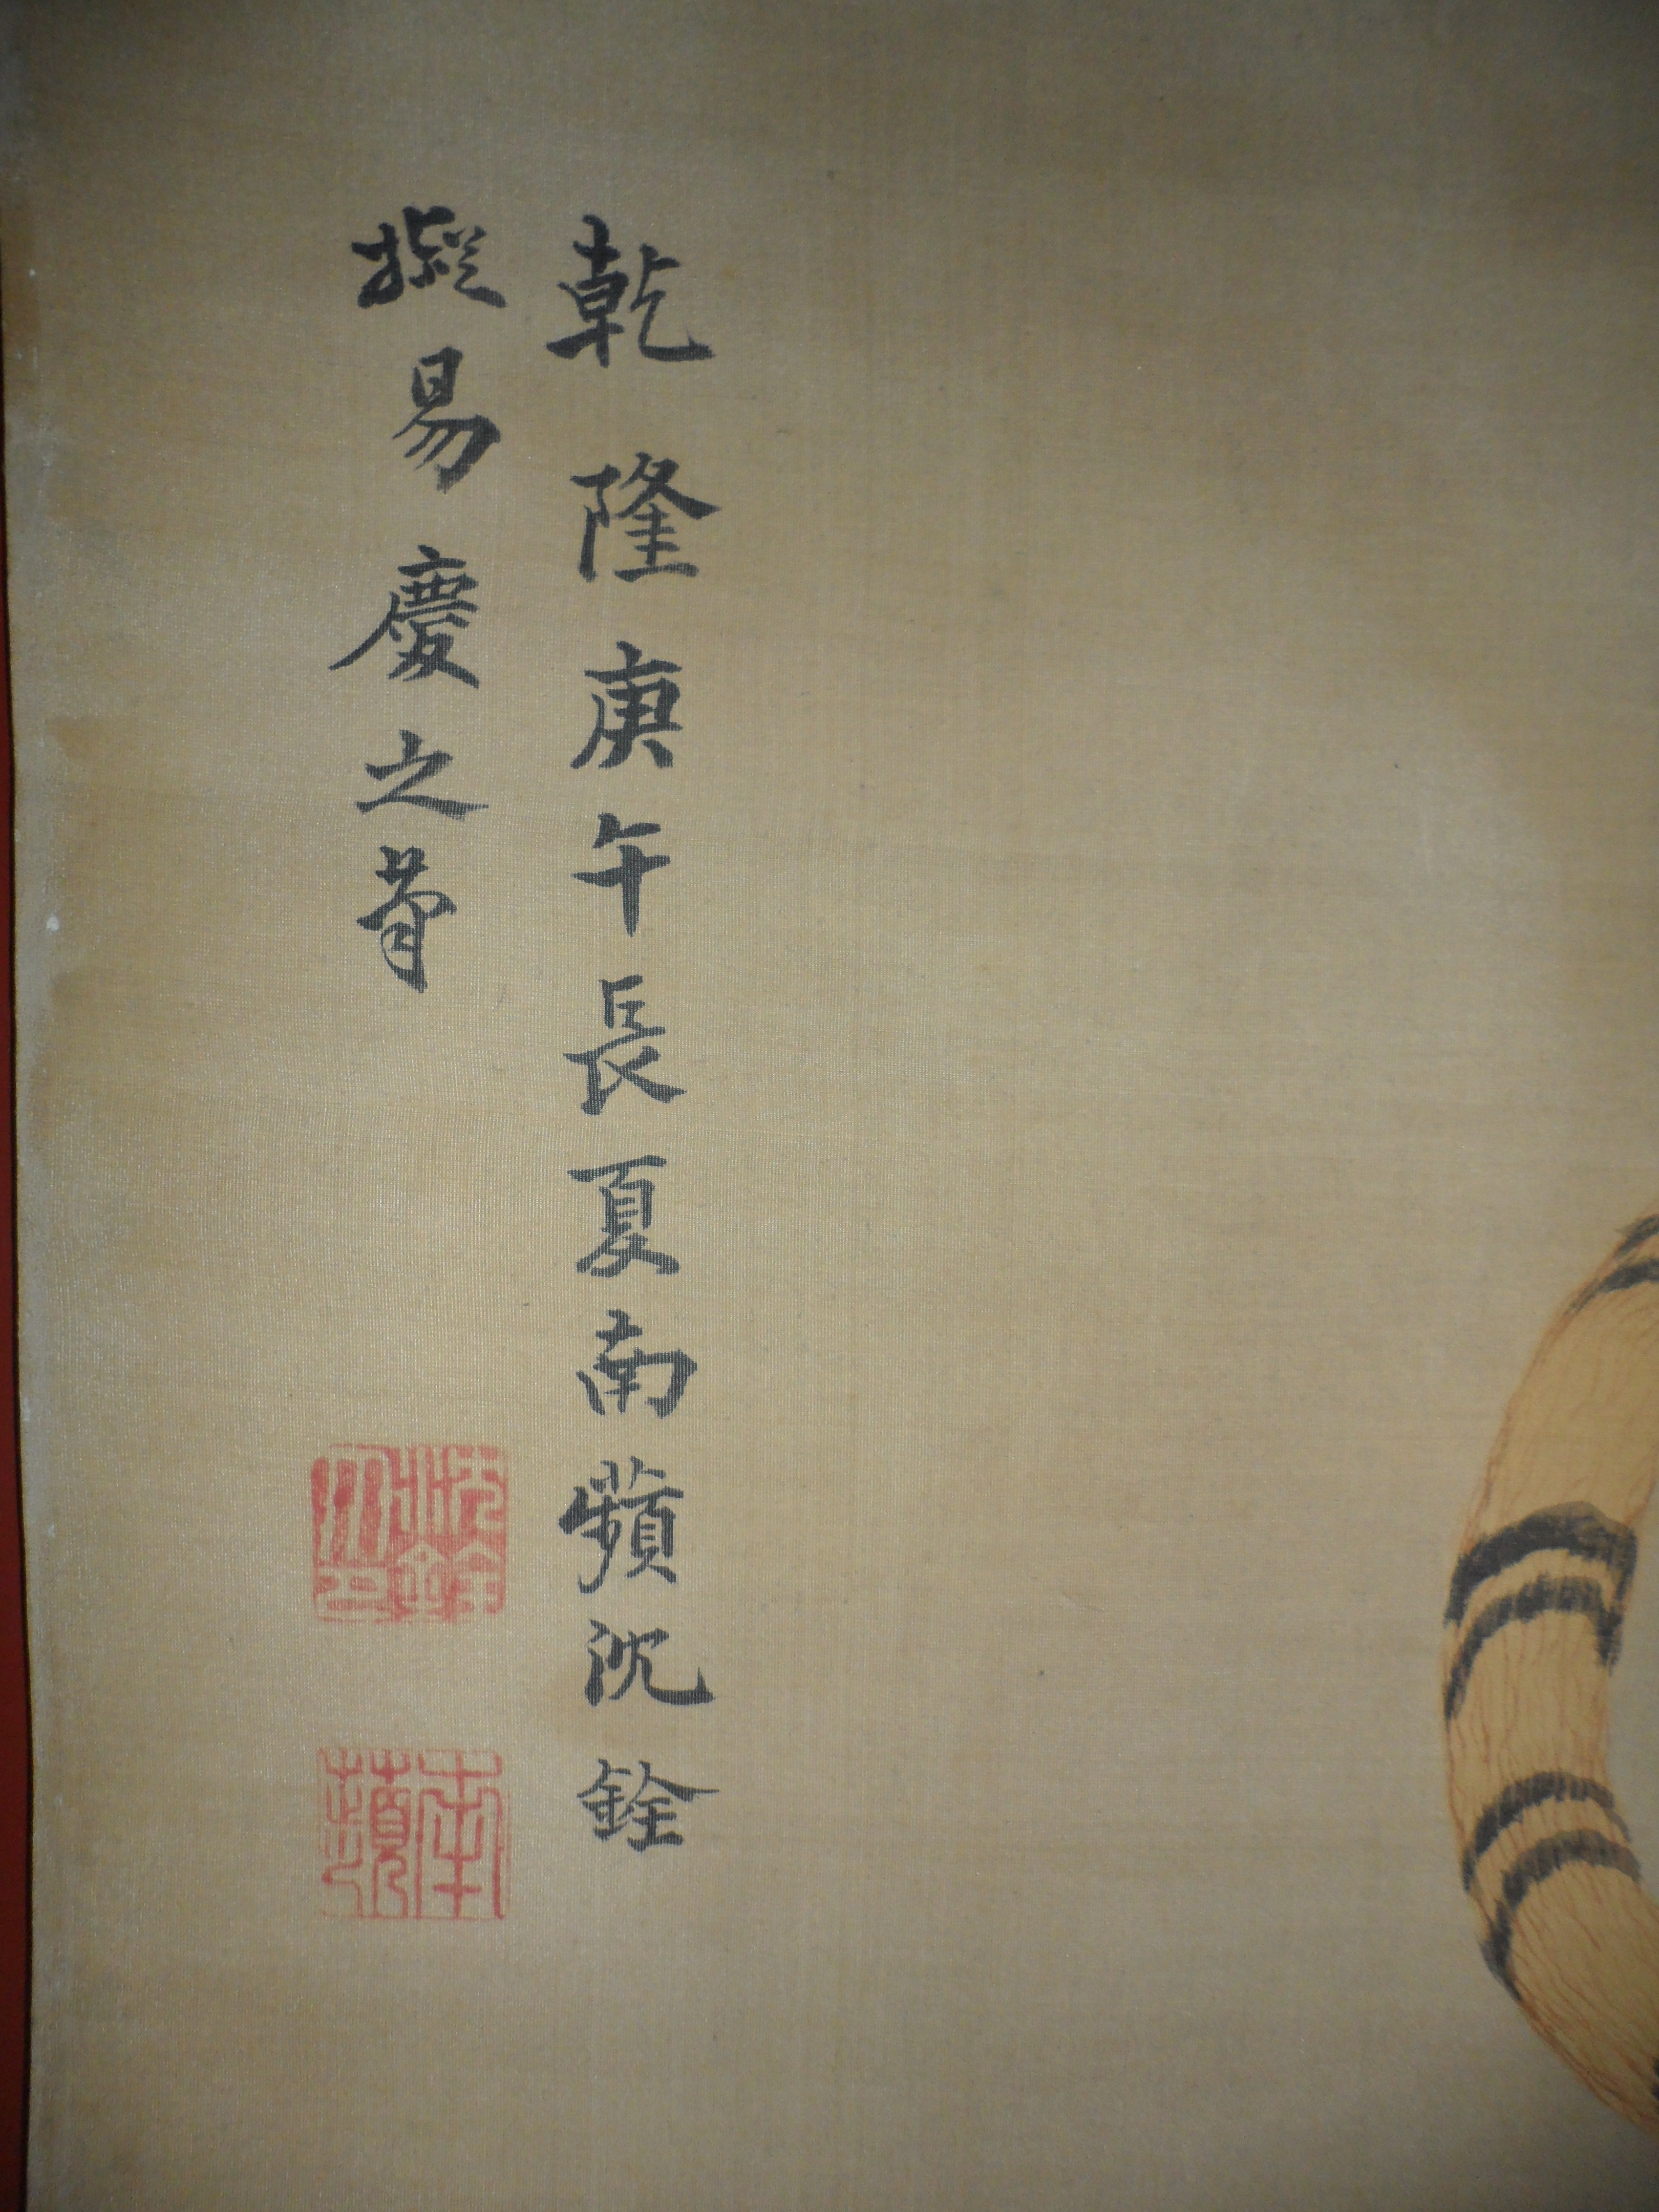 乾隆庚午長夏南蘋沈銓
擬易慶之筆
沈銓之印
南蘋